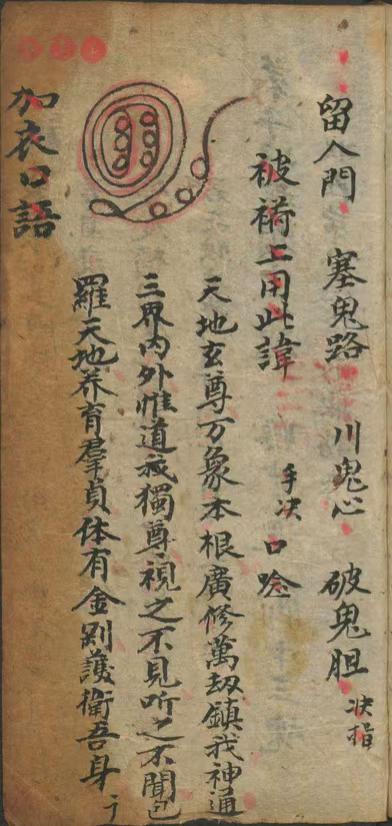 留人門 塞鬼路 川鬼心 破鬼胆 决指
被褥上用此諱 手决 口唸
天地玄尊万象本根廣修萬刼鎮我神通
三界内外惟道祗獨尊視之不見听之不聞包
羅天地养育羣貞体有金剛護衛吾身
加衣口語